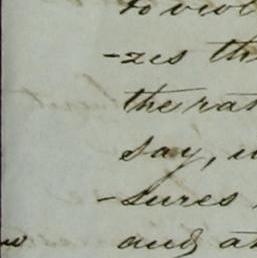 to viol
-zes th
the rat
say, 
-sures
and at